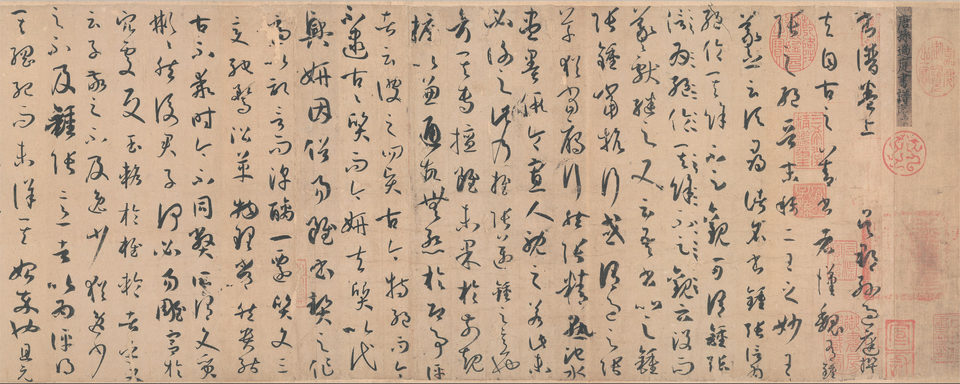 唐孫過庭書譜序
書譜卷上　吳郡孫過庭撰
夫自古之善書者漢魏有鍾
張之絕晉末稱二王之妙王
羲之云頃尋諸名書鍾張信為
絕倫其餘不足觀可謂鍾張
信為絕倫其餘不足觀云沒而
羲獻繼之又云吾書比之鍾
張鍾當抗行或謂過之張
草猶當鴈行然張精熟池水
盡墨假令寡人耽之若此未
必謝之此乃推張邁鍾之意也
考其專擅雖未果於前規
摭以兼通故無慚於即事評
者云彼之四賢古今特絕而今
不逮古古質而今妍夫質以代
興妍因俗易雖書契之作
適以記言而淳醨一遷質文三
變馳騖沿革物理常然貴能
古不乖時今不同弊所謂文質
彬彬然後君子何必易雕宮於
穴處反玉輅於椎輪者乎又
云子敬之不及逸少猶逸少
之不及鍾張意者以為評得
其綱紀而未詳其始卒也且元